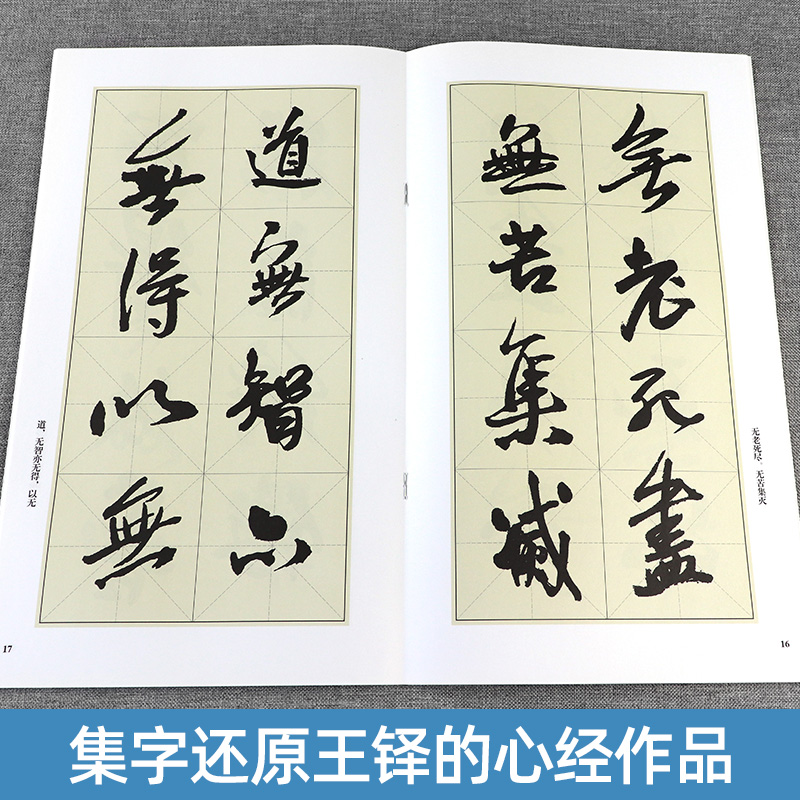 無老死盡
無苦集滅
无老死尽,无苦集灭
16
道無智亦
無得以無
道,无智亦无得,以无
17
集字还原王铎的心经作品